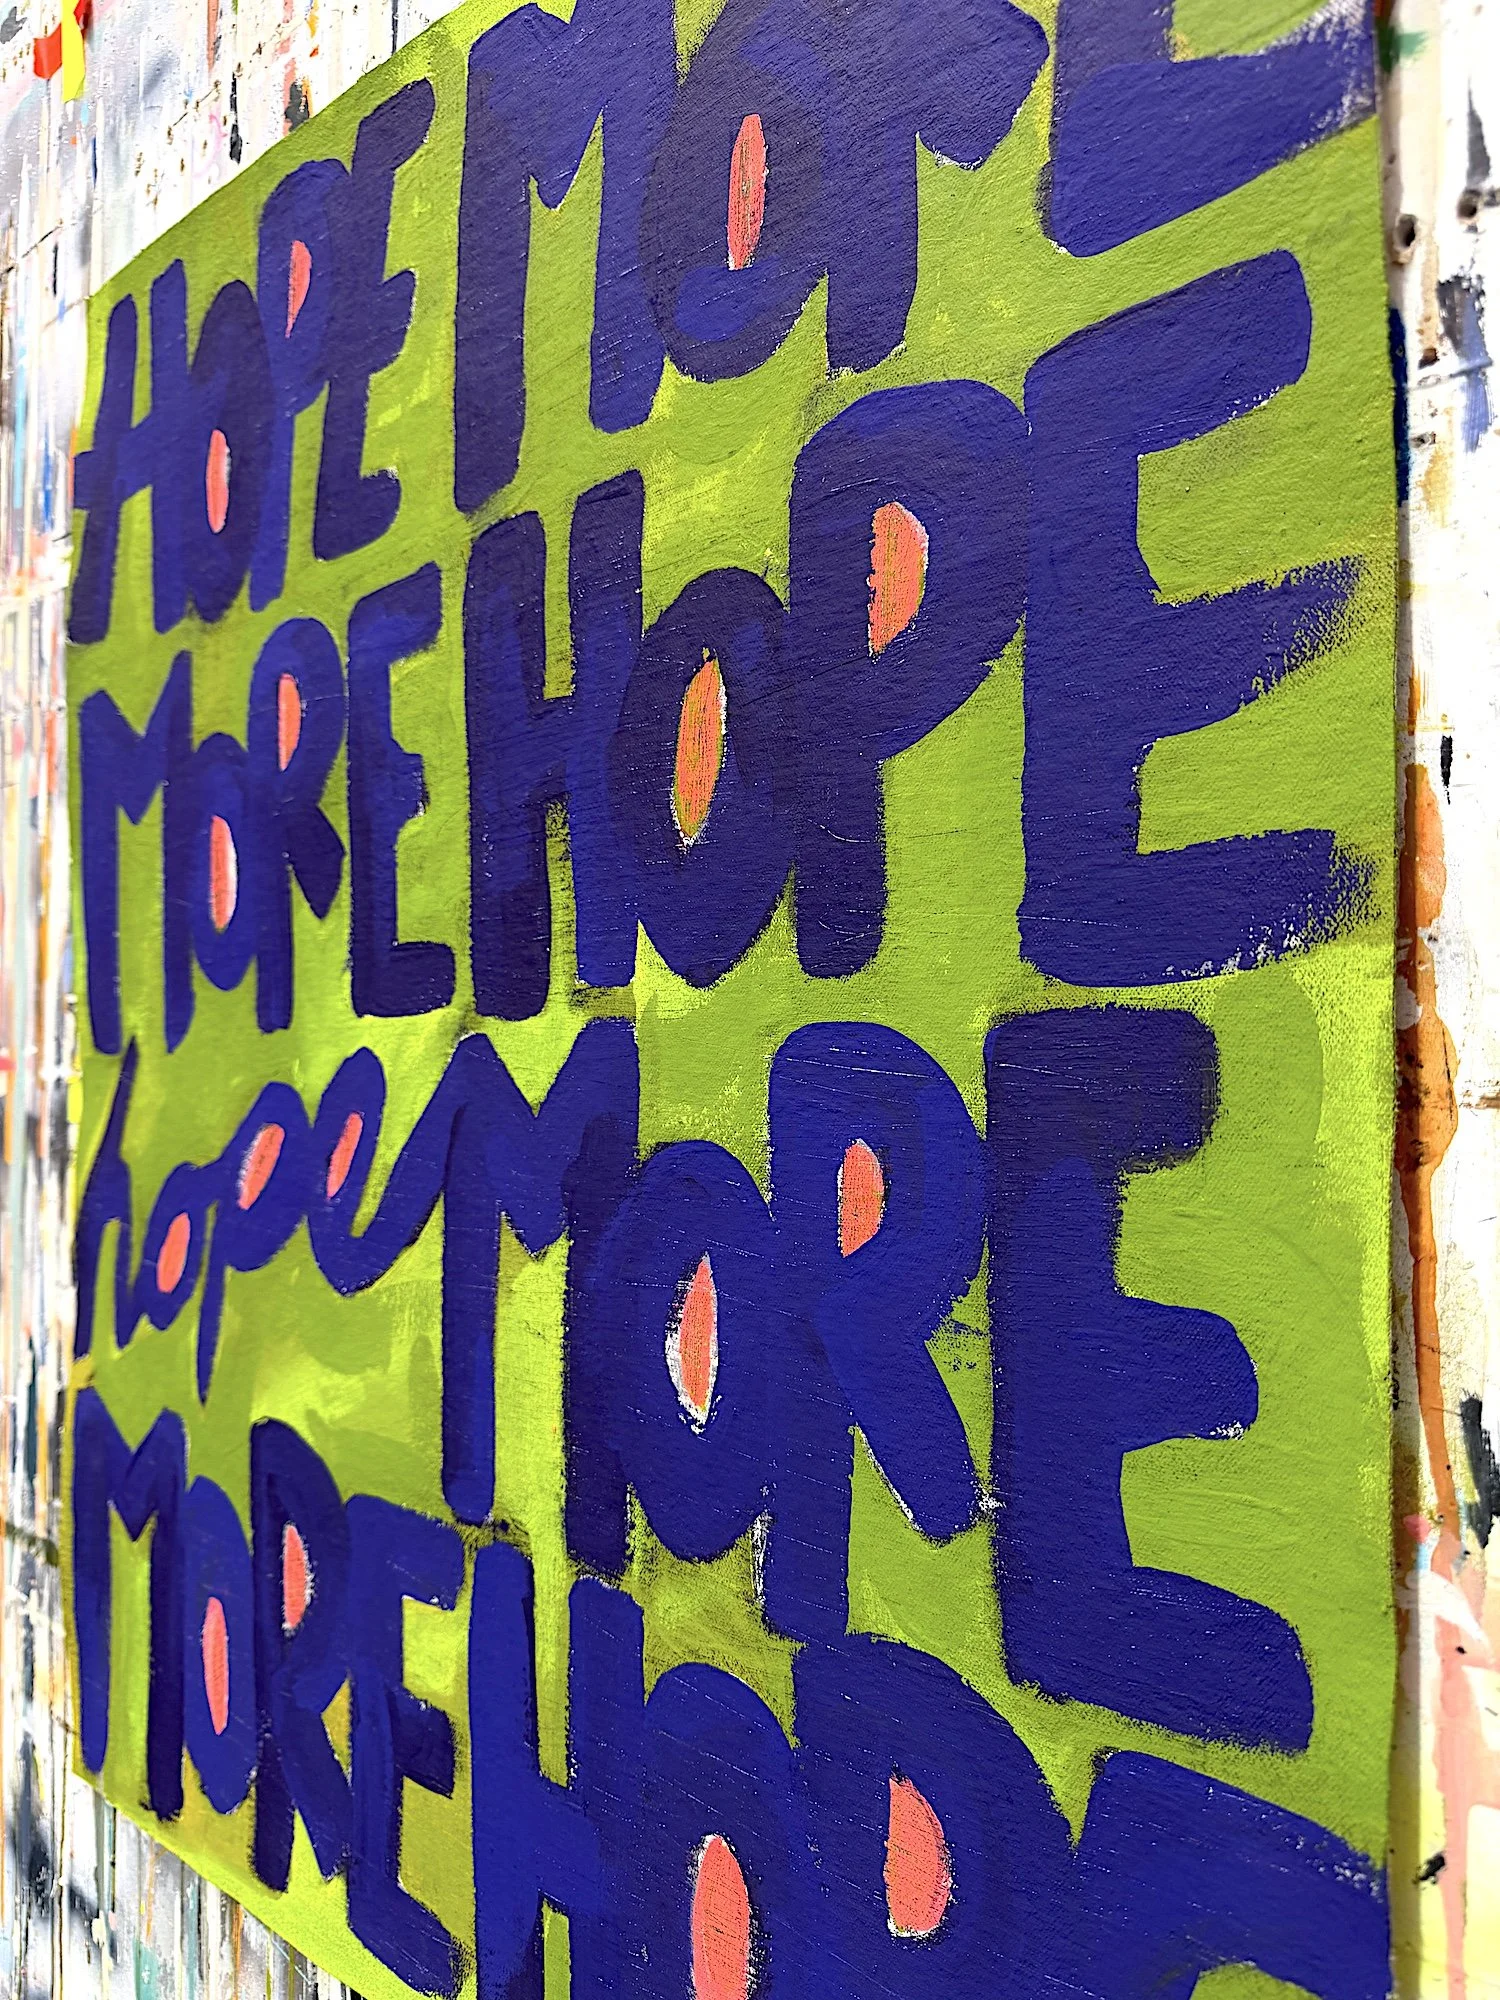 HOPE MORE
MORE HOPE
hope MORE
MORE HOPE